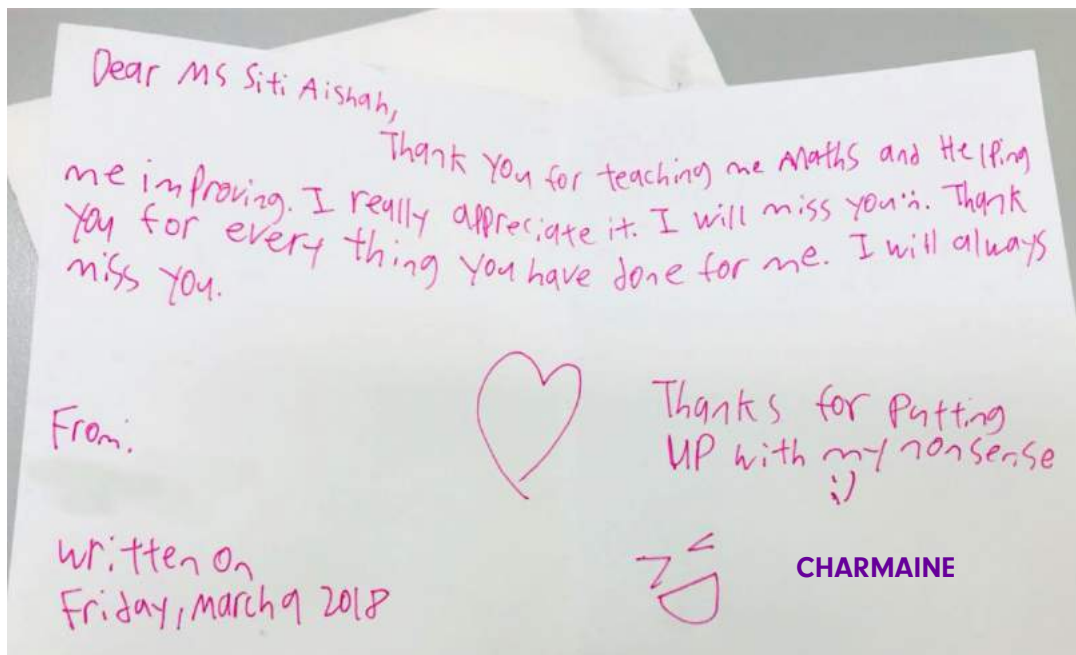 Dear Ms Siti Aishah,
Thank you for teaching me Maths and Helping
me improving. I really appreciate it. I will miss you :). Thank
you for every thing you have done for me. I will always
miss you.
From:
Thanks for putting
up with my nonsense
:)
written on
Friday, March 9 2018
CHARMAINE